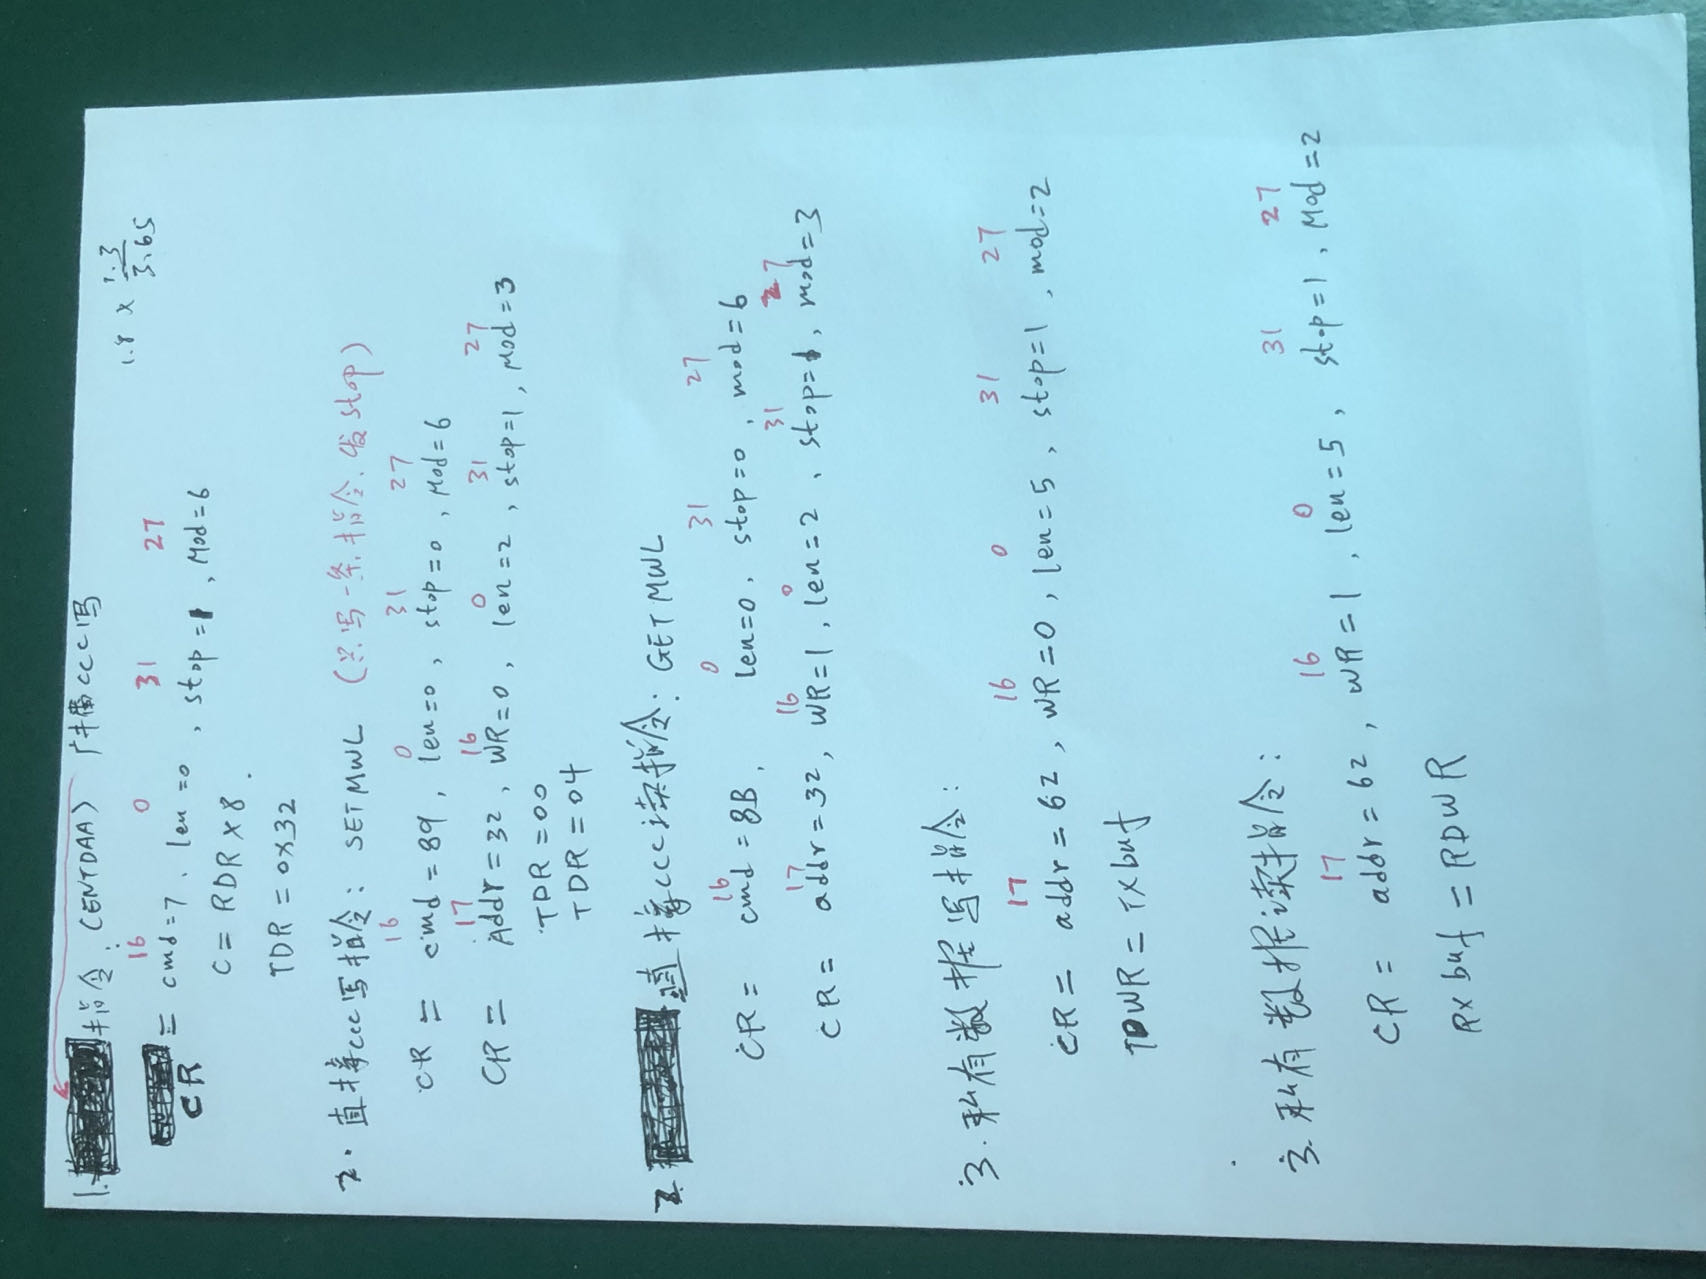 1. 指令: (ENTDAA) 广播CCC写
1.8 × 1.3/3.65
16 0 31 27
CR = cmd=7、len=0, stop=1, Mod=6
C = RDR × 8.
TDR = 0x32
2. 直接ccc写指令: SETMWL (只写一条指令、发stop)
16 0 31 27
CR = cmd = 89, len=0, stop=0, Mod=6
17 16 0 31 27
CR = Addr=32, WR=0, len=2, stop=1, Mod=3
TDR = 00
TDR = 04
2. 直接ccc读指令: GETMWL
16 0 31 27
CR = cmd = 8B, len=0, stop=0, mod=6
17 16 0 31 27
CR = addr=32, WR=1, len=2、stop=1, mod=3
3. 私有数据写指令:
17 16 0 31 27
CR = addr=62, WR=0, len=5, stop=1, mod=2
TDWR = TXbuf
3. 私有数据读指令:
17 16 0 31 27
CR = addr=62, WR=1, len=5, stop=1, Mod=2
RXbuf = RDWR